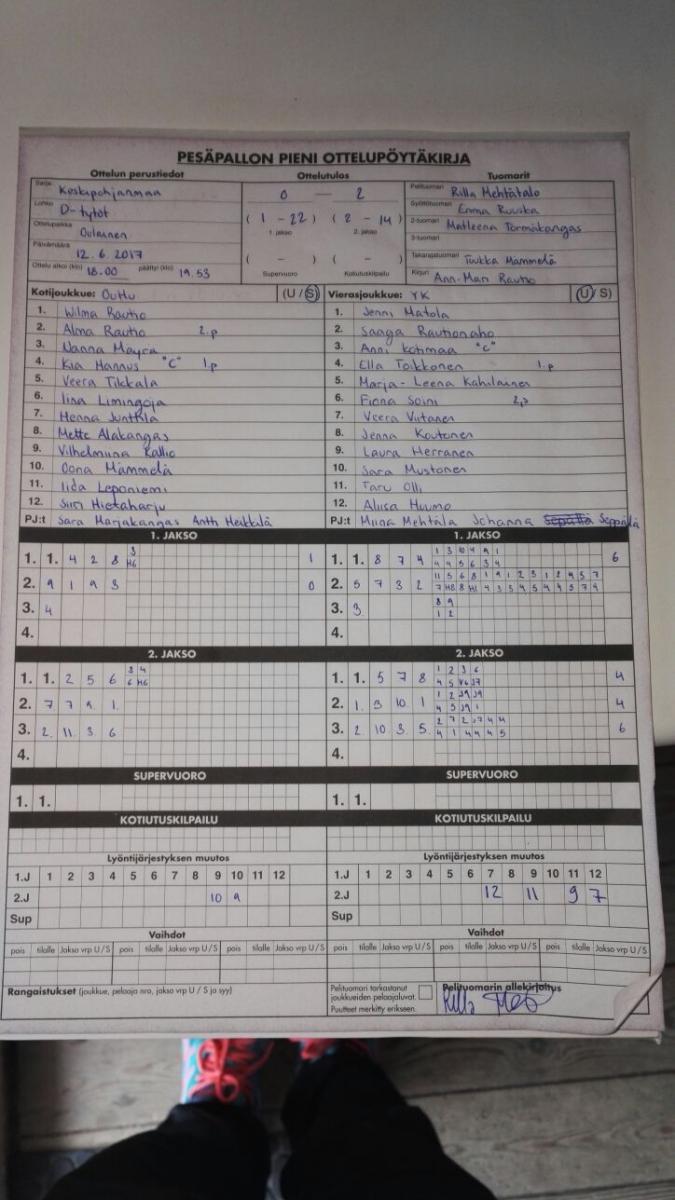 PESÄPALLON PIENI OTTELUPÖYTÄKIRJA
Ottelun perustiedot Ottelutulos Tuomarit
Sarja Keskipohjanmaa 0 — 2 Pelituomari Rilla Mehtätalo
Lohko D-tytöt Syöttötuomari Emma
Ottelupaikka Oulainen (1-22) (2-14) 2-tuomari Matleena Törmäkangas
1. jakso 2. jakso 3-tuomari
Päivämäärä 12.6.2017 (-) (-) Takarajatuomari Tuukka Mämmelä
Ottelu alkoi (klo) 18.00 päättyi (klo) 19.53 Supervuoro Kotiutuskilpailu Kirjuri Ann-Mari Rautio
Kotijoukkue: OuHu (U / S) Vierasjoukkue: YK (U / S)
1. Wilma Rautio 1. Jenni Matola
2. Alma Rautio 2.p 2. Saaga Rautionaho
3. Nanna Mayra 3. Anni Kotimaa "C"
4. Kia Hannus "C" 1.p 4. Ella Toikkonen 1.p
5. Veera Tikkala 5. Marja-Leena Kahilainen
6. Iina Limingoja 6. Fiona Soini 2.p
7. Henna Junttila 7. Veera Viitanen
8. Mette Alakangas 8. Jenna Koutonen
9. Vilhelmiina Kallio 9. Laura Herranen
10. Oona Mämmelä 10. Sara Mustonen
11. Iida Leponiemi 11. Taru Olli
12. Siiri Hietaharju 12. Aliisa Huumo
PJ:t Sara Marjakangas Antti Heikkilä PJ:t Miina Mehtälä Johanna Seppälä
1. JAKSO 1. JAKSO
1. 1. 4 2 8 3 H6 1 1. 1. 8 7 4 6
2. 9 1 9 3 0 2. 5 7 3 2
3. 4 3. 3 8 9 1 2
4. 4.
2. JAKSO 2. JAKSO
1. 1. 2 5 6 3 4 6 H6 1. 1. 5 7 8 1 2 3 6 4
2. 7 7 9 1 2. 1. 3 10 1 4
3. 2. 11 3 6 3. 2 10 3 5 6
4. 4.
SUPERVUORO SUPERVUORO
1. 1. 1. 1.
KOTIUTUSKILPAILU KOTIUTUSKILPAILU
Lyöntijärjestyksen muutos Lyöntijärjestyksen muutos
1.J 1 2 3 4 5 6 7 8 9 10 11 12 1.J 1 2 3 4 5 6 7 8 9 10 11 12
2.J 10 9 2.J 12 11 9 7
Sup Sup
Vaihdot Vaihdot
pois tilalle Jakso vrp U / S pois tilalle Jakso vrp U / S pois tilalle Jakso vrp U / S pois tilalle Jakso vrp U / S pois tilalle Jakso vrp U / S pois tilalle Jakso vrp U / S
Rangaistukset (joukkue, pelaaja nro, jakso vrp U / S ja syy) Pelituomari tarkastanut Pelituomarin allekirjoitus
joukkueiden pelaajaluvat.
Puutteet merkitty erikseen. Rilla